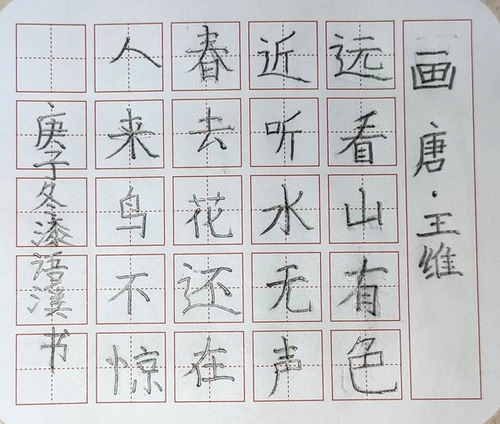 画 唐·王维
远看山有色
近听水无声
春去花还在
人来鸟不惊
庚子冬漆语漢书